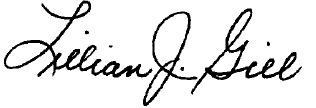 Lilian J. Gill